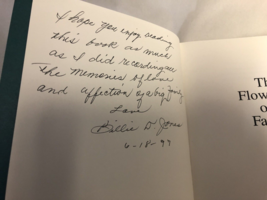 I hope you enjoy reading
this book as much
as I did recording
The memories of love
and affection of a big family
Love
Billie D. Jones
6-18-99
The
Flow
o
Fa